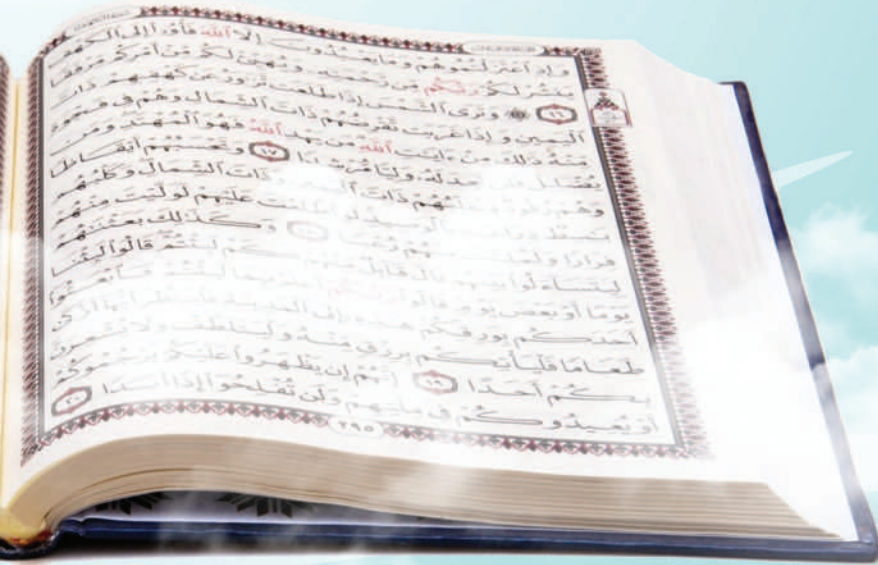 وَإِذِ ٱعْتَزَلْتُمُوهُمْ وَمَا يَعْبُدُونَ إِلَّا ٱللَّهَ فَأْوُۥٓا۟ إِلَى ٱلْكَهْفِ
يَنشُرْ لَكُمْ رَبُّكُم مِّن رَّحْمَتِهِۦ وَيُهَيِّئْ لَكُم مِّنْ أَمْرِكُم مِّرْفَقًا
١٦ ۞ وَتَرَى ٱلشَّمْسَ إِذَا طَلَعَت تَّزَٰوَرُ عَن كَهْفِهِمْ ذَاتَ
ٱلْيَمِينِ وَإِذَا غَرَبَت تَّقْرِضُهُمْ ذَاتَ ٱلشِّمَالِ وَهُمْ فِى فَجْوَةٍ
مِّنْهُ ذَٰلِكَ مِنْ ءَايَٰتِ ٱللَّهِ مَن يَهْدِ ٱللَّهُ فَهُوَ ٱلْمُهْتَدِ وَمَن
يُضْلِلْ فَلَن تَجِدَ لَهُۥ وَلِيًّا مُّرْشِدًا ١٧ وَتَحْسَبُهُمْ أَيْقَاظًا
وَهُمْ رُقُودٌ ذَاتَ وَذَاتَ ٱلشِّمَالِ وَكَلْبُهُم
لَوِ ٱطَّلَعْتَ عَلَيْهِمْ لَوَلَّيْتَ مِنْهُمْ
فِرَارًا رُعْبًا وَكَذَٰلِكَ بَعَثْنَٰهُمْ
لِيَتَسَآءَلُوا۟ بَيْنَهُمْ قَالَ قَآئِلٌ كَمْ لَبِثْتُمْ قَالُوا۟ لَبِثْنَا
يَوْمًا أَوْ بَعْضَ يَوْمٍ قَالُوا۟ بِمَا لَبِثْتُمْ فَٱبْعَثُوٓا۟
أَحَدَكُم بِوَرِقِكُمْ هَٰذِهِۦٓ إِلَى ٱلْمَدِينَةِ فَلْيَنظُرْ أَيُّهَآ أَزْكَىٰ
طَعَامًا فَلْيَأْتِكُم بِرِزْقٍ مِّنْهُ وَلْيَتَلَطَّفْ وَلَا يُشْعِرَنَّ
بِكُمْ أَحَدًا ١٩ إِنَّهُمْ إِن يَظْهَرُوا۟ عَلَيْكُمْ يَرْجُمُوكُمْ
أَوْ يُعِيدُوكُمْ فِى مِلَّتِهِمْ وَلَن تُفْلِحُوٓا۟ إِذًا أَبَدًا ٢٠
٢٩٥